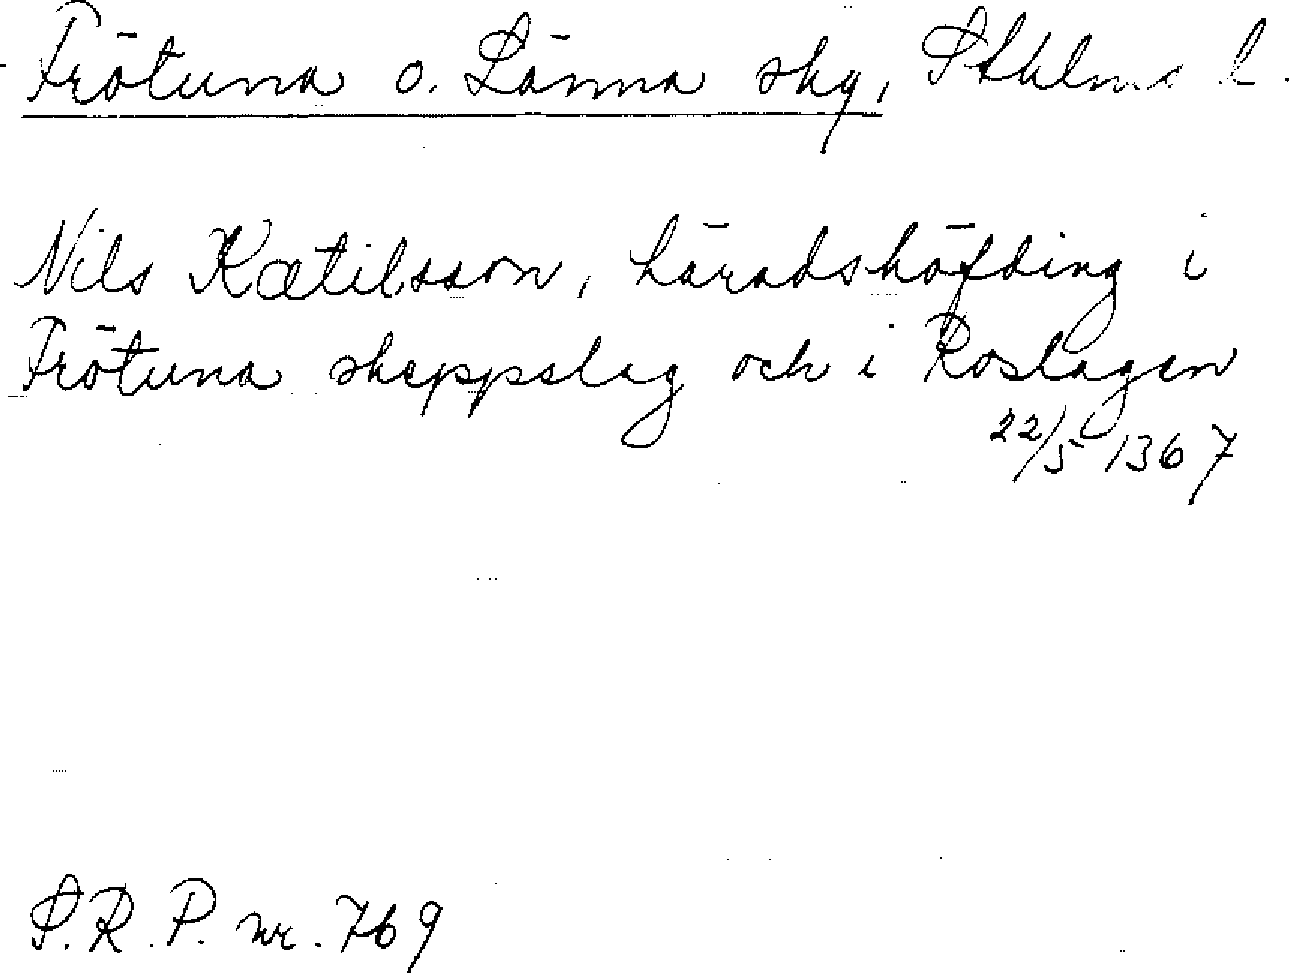 Frötuna o. Länna skg, Sthlms l.
Nils Kætilsson, häradshöfding i
Frötuna skeppslag och i Roslagen
22/5 1367
S.R.P. nr. 769